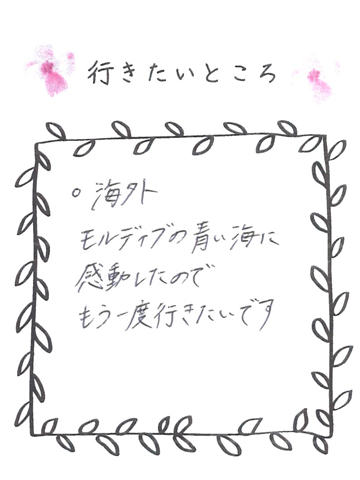 行きたいところ
○ 海外
モルディブの青い海に
感動したので
もう一度行きたいです